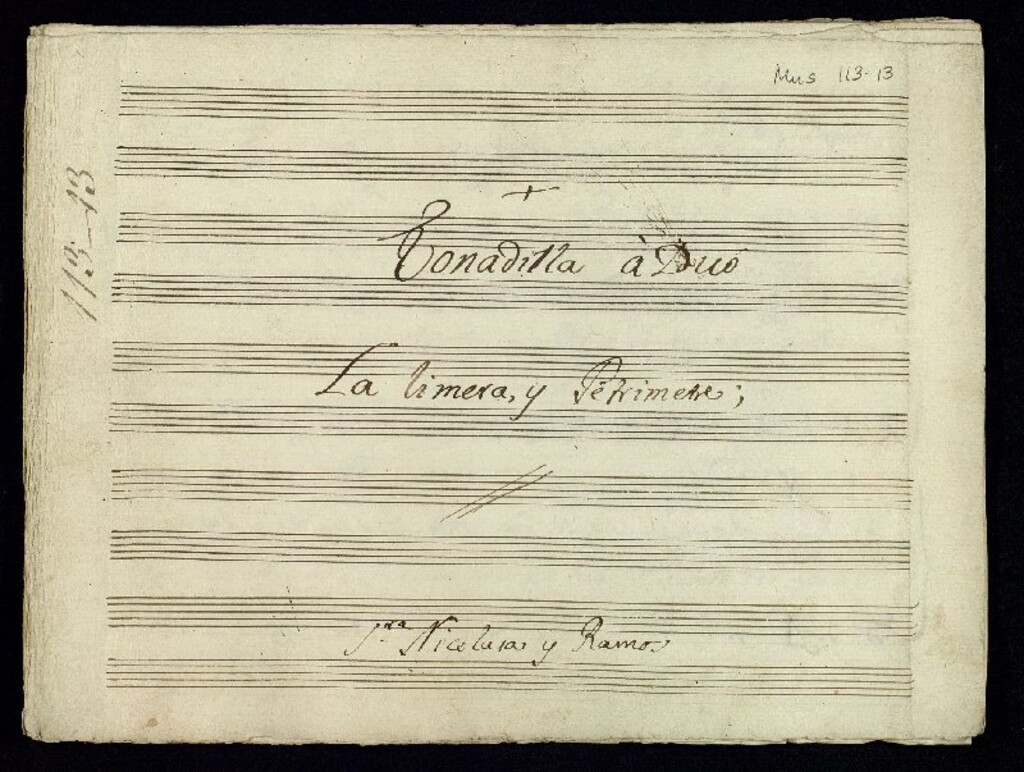 Mus 113-13
113-13
+
Tonadilla à Duo
La limera, y Petrimetre;
Sra Nicolasa y Ramos